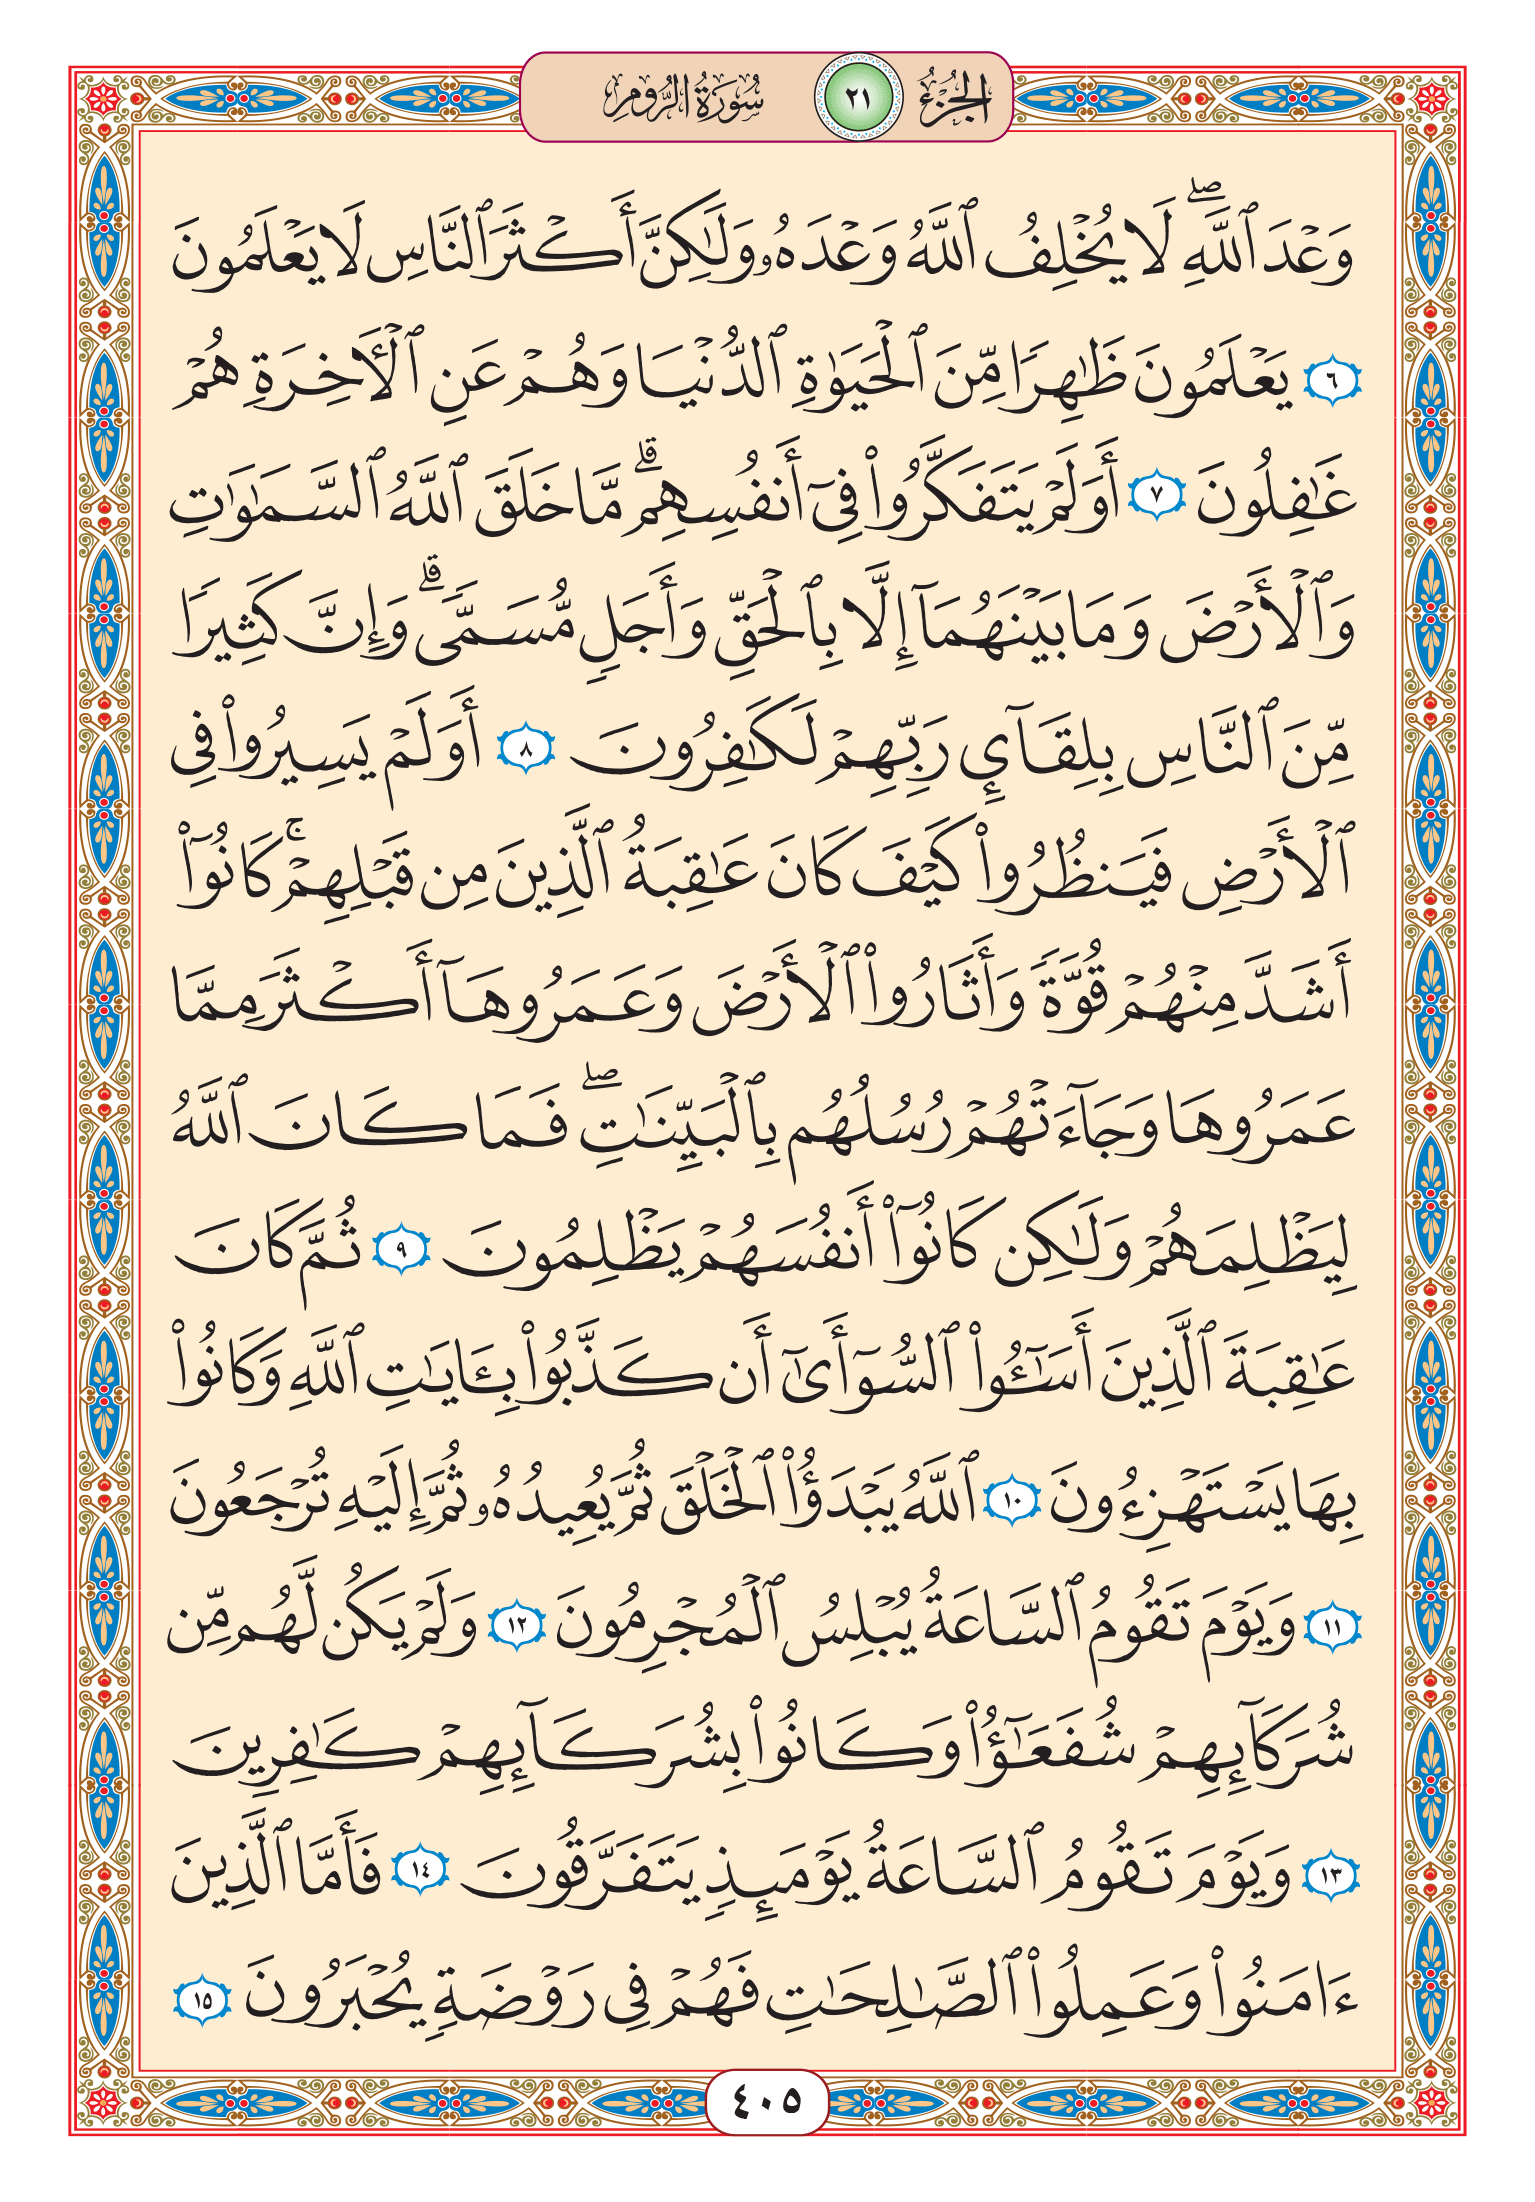 الجزء ٢١ سورة الروم
وَعْدَ ٱللَّهِۖ لَا يُخْلِفُ ٱللَّهُ وَعْدَهُۥ وَلَٰكِنَّ أَكْثَرَ ٱلنَّاسِ لَا يَعْلَمُونَ
٦ يَعْلَمُونَ ظَٰهِرًا مِّنَ ٱلْحَيَوٰةِ ٱلدُّنْيَا وَهُمْ عَنِ ٱلْءَاخِرَةِ هُمْ
غَٰفِلُونَ ٧ أَوَلَمْ يَتَفَكَّرُوا۟ فِىٓ أَنفُسِهِمۗ مَّا خَلَقَ ٱللَّهُ ٱلسَّمَٰوَٰتِ
وَٱلْأَرْضَ وَمَا بَيْنَهُمَآ إِلَّا بِٱلْحَقِّ وَأَجَلٍ مُّسَمًّىۗ وَإِنَّ كَثِيرًا
مِّنَ ٱلنَّاسِ بِلِقَآئِ رَبِّهِمْ لَكَٰفِرُونَ ٨ أَوَلَمْ يَسِيرُوا۟ فِى
ٱلْأَرْضِ فَيَنظُرُوا۟ كَيْفَ كَانَ عَٰقِبَةُ ٱلَّذِينَ مِن قَبْلِهِمْۚ كَانُوٓا۟
أَشَدَّ مِنْهُمْ قُوَّةً وَأَثَارُوا۟ ٱلْأَرْضَ وَعَمَرُوهَآ أَكْثَرَ مِمَّا
عَمَرُوهَا وَجَآءَتْهُمْ رُسُلُهُم بِٱلْبَيِّنَٰتِۖ فَمَا كَانَ ٱللَّهُ
لِيَظْلِمَهُمْ وَلَٰكِن كَانُوٓا۟ أَنفُسَهُمْ يَظْلِمُونَ ٩ ثُمَّ كَانَ
عَٰقِبَةَ ٱلَّذِينَ أَسَٰٓـُٔوا۟ ٱلسُّوٓأَىٰٓ أَن كَذَّبُوا۟ بِـَٔايَٰتِ ٱللَّهِ وَكَانُوا۟
بِهَا يَسْتَهْزِءُونَ ١٠ ٱللَّهُ يَبْدَؤُا۟ ٱلْخَلْقَ ثُمَّ يُعِيدُهُۥ ثُمَّ إِلَيْهِ تُرْجَعُونَ
١١ وَيَوْمَ تَقُومُ ٱلسَّاعَةُ يُبْلِسُ ٱلْمُجْرِمُونَ ١٢ وَلَمْ يَكُن لَّهُم مِّن
شُرَكَآئِهِمْ شُفَعَٰٓؤُا۟ وَكَانُوا۟ بِشُرَكَآئِهِمْ كَٰفِرِينَ
١٣ وَيَوْمَ تَقُومُ ٱلسَّاعَةُ يَوْمَئِذٍ يَتَفَرَّقُونَ ١٤ فَأَمَّا ٱلَّذِينَ
ءَامَنُوا۟ وَعَمِلُوا۟ ٱلصَّٰلِحَٰتِ فَهُمْ فِى رَوْضَةٍ يُحْبَرُونَ ١٥
٤٠٥